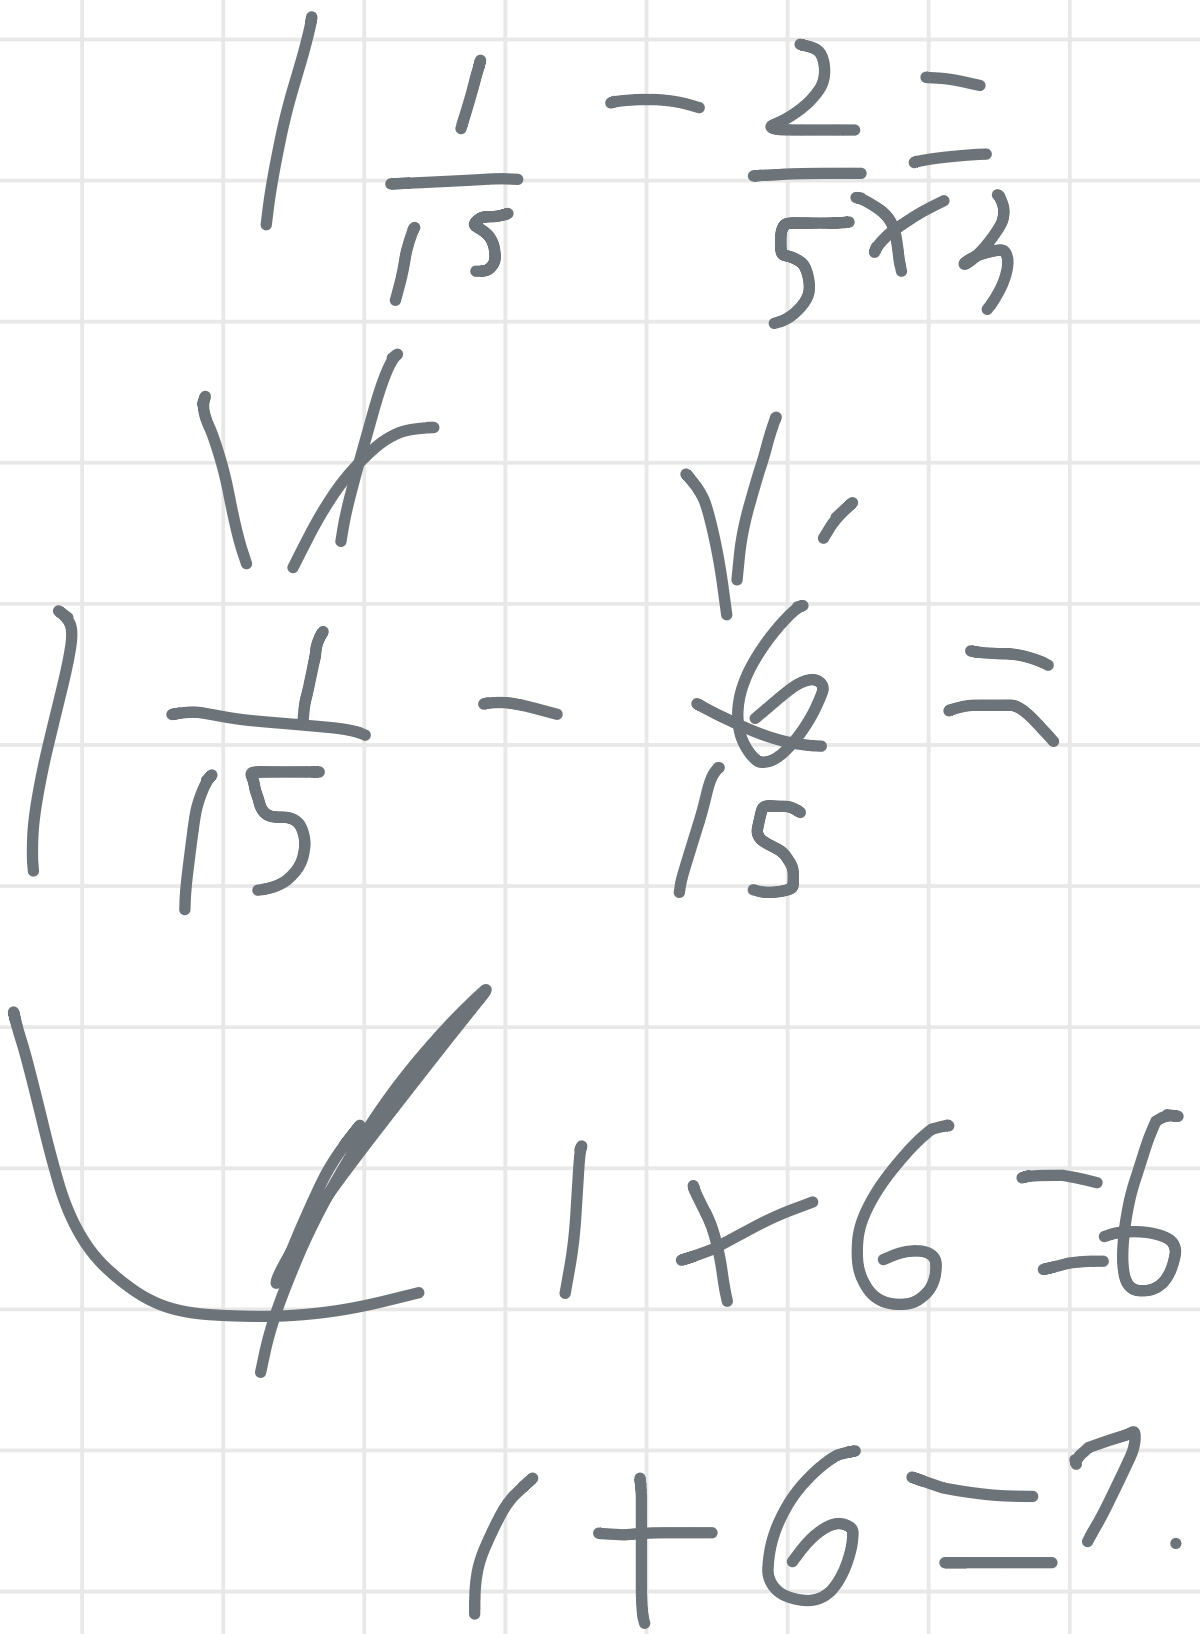 1 1/15 - 2/5×3 =
1 1/15 - 6/15 =
1 + 6 = 6
1 + 6 = 7.